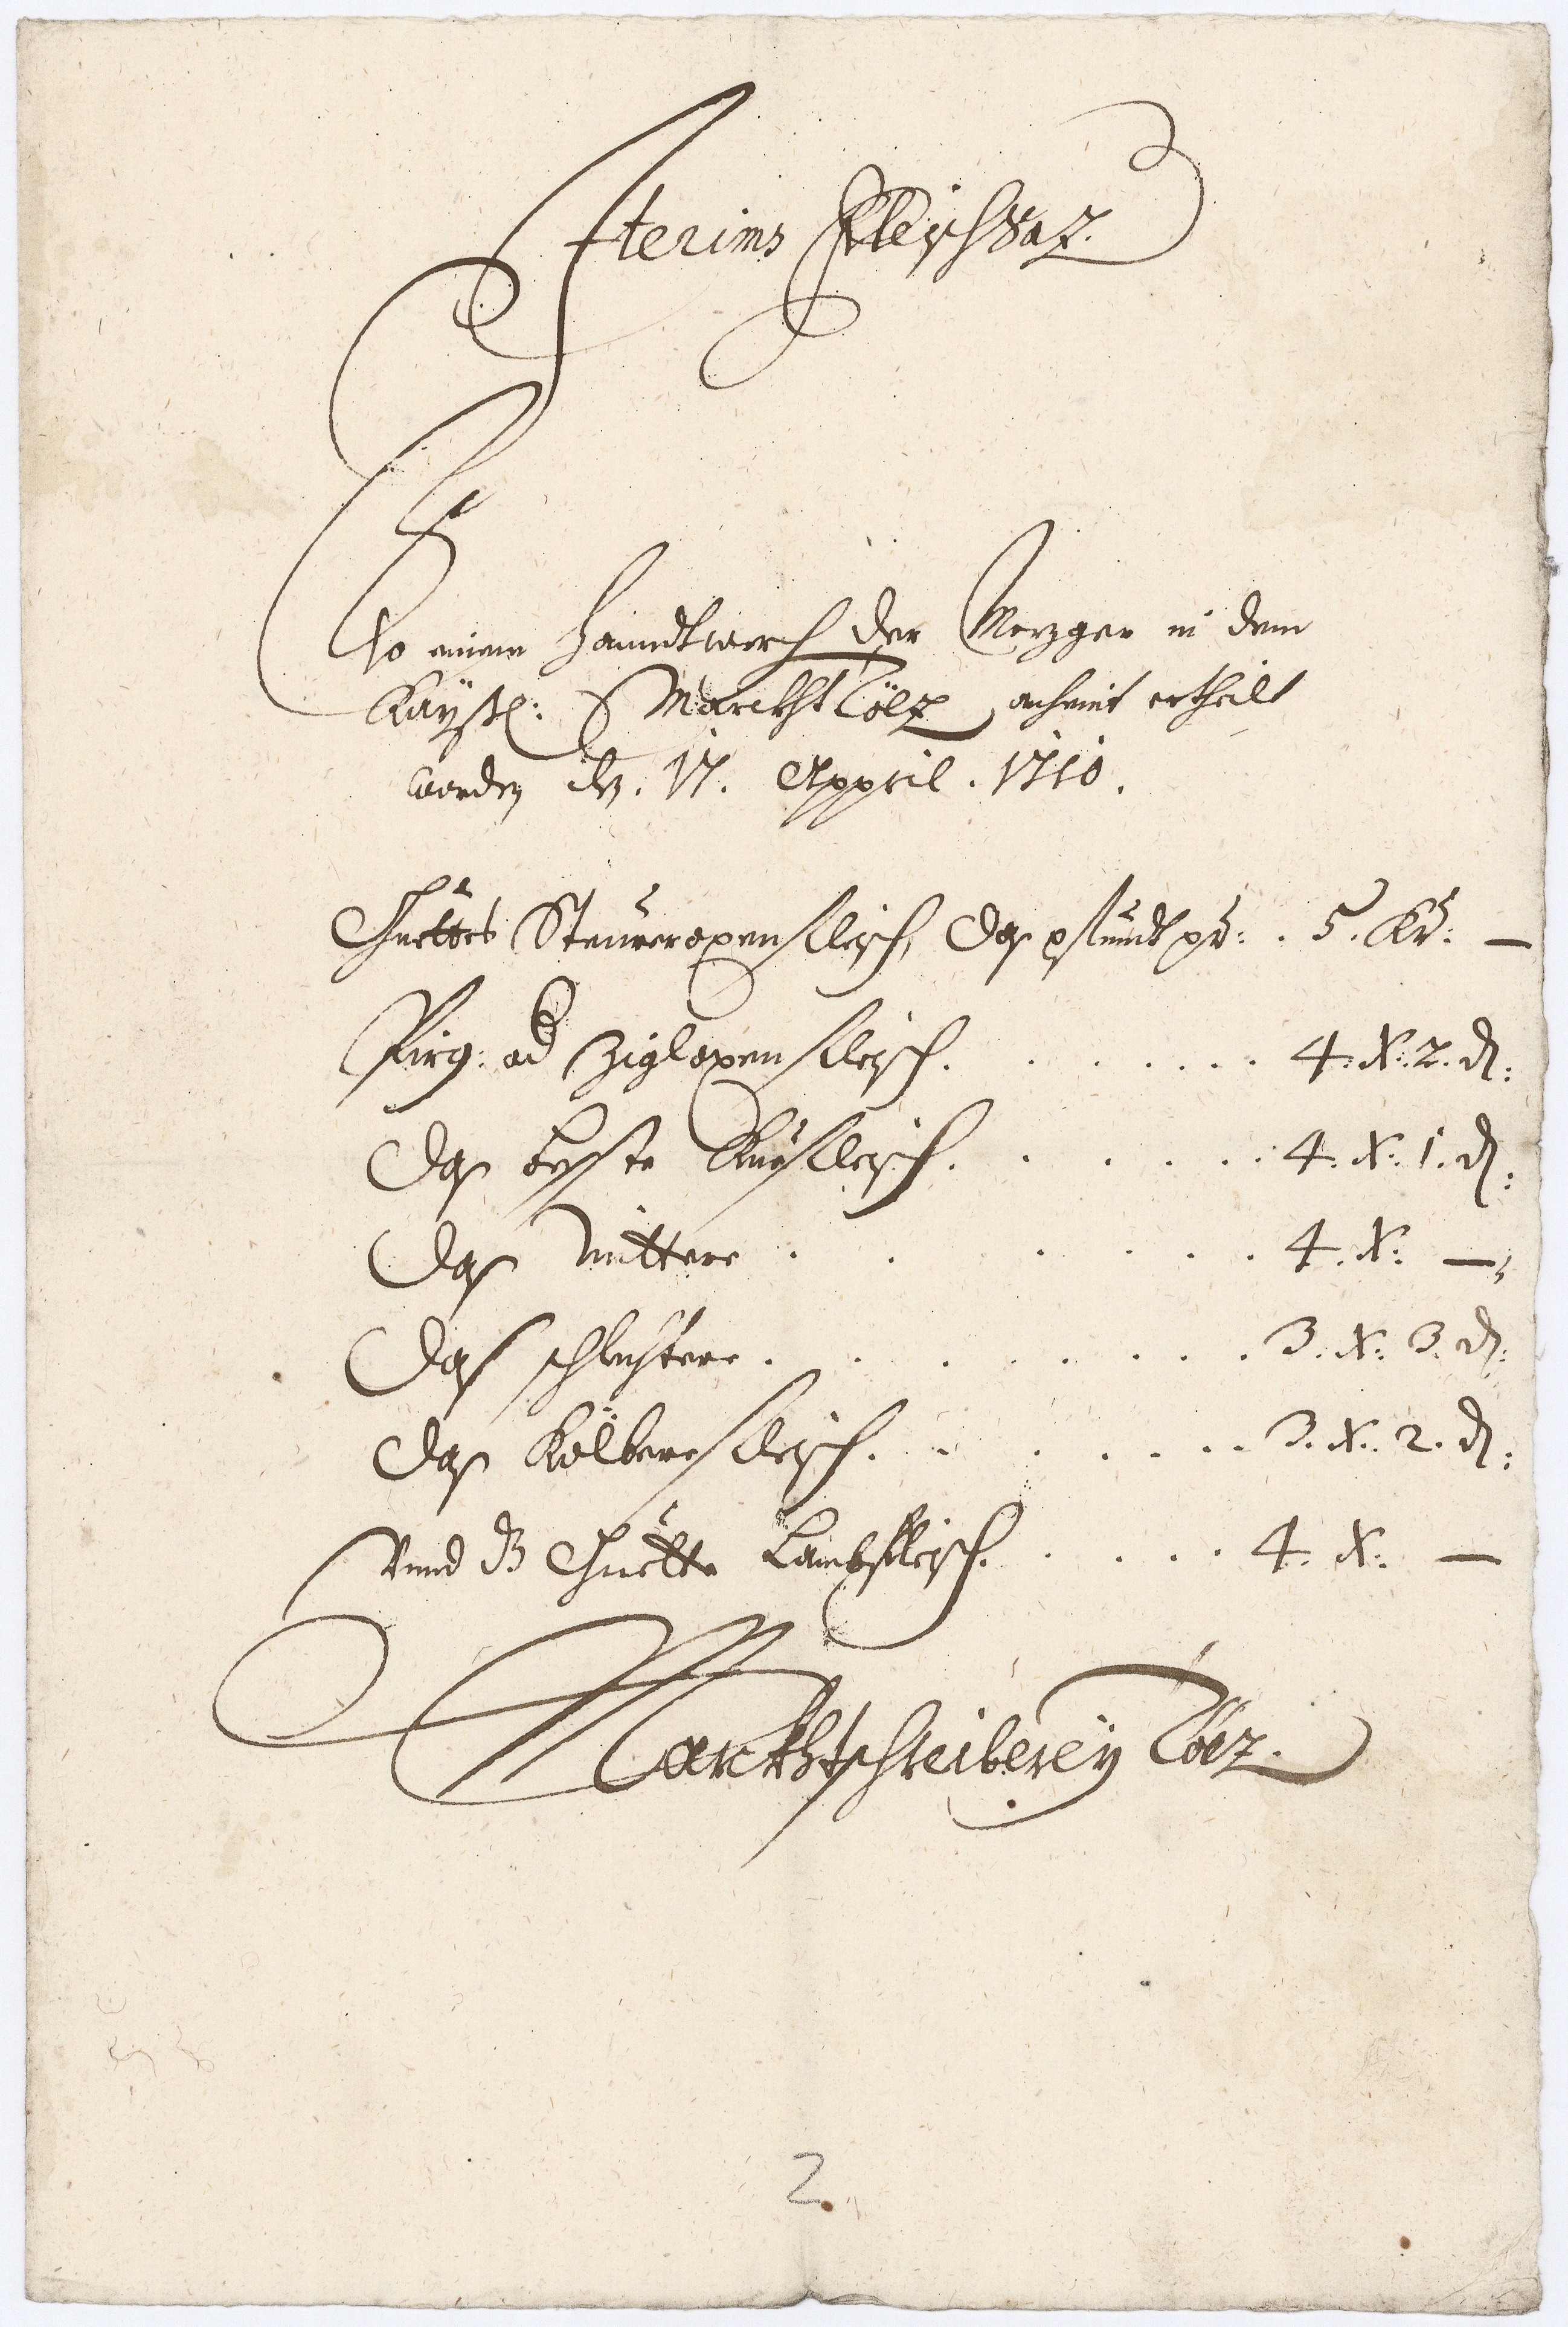 Iterims Fleischsaz.
So einem Handtwerch der Mezger in dem
Kayßl: Marckht Tölz anheut ertheilt
worden den. 17. Appril. 1710.
Guettes Steurer oxenfleisch, das pfundt pr: . 5. Kr: —
Pirg: od Zigloxenfleisch. . . . . . . 4. X: 2. d:
Das beste Kuefleisch. . . . . . . 4. X: 1. d:
Das mittere . . . . . . 4. X: —
Das schlechtere . . . . . . . . 3. X: 3. d:
Das Kölberfleisch. . . . . . . 3. X: 2. d:
Vnnd dz Guette Lambfleisch. . . . . 4. X: —
Marckhtschreiberey Tölz.
2